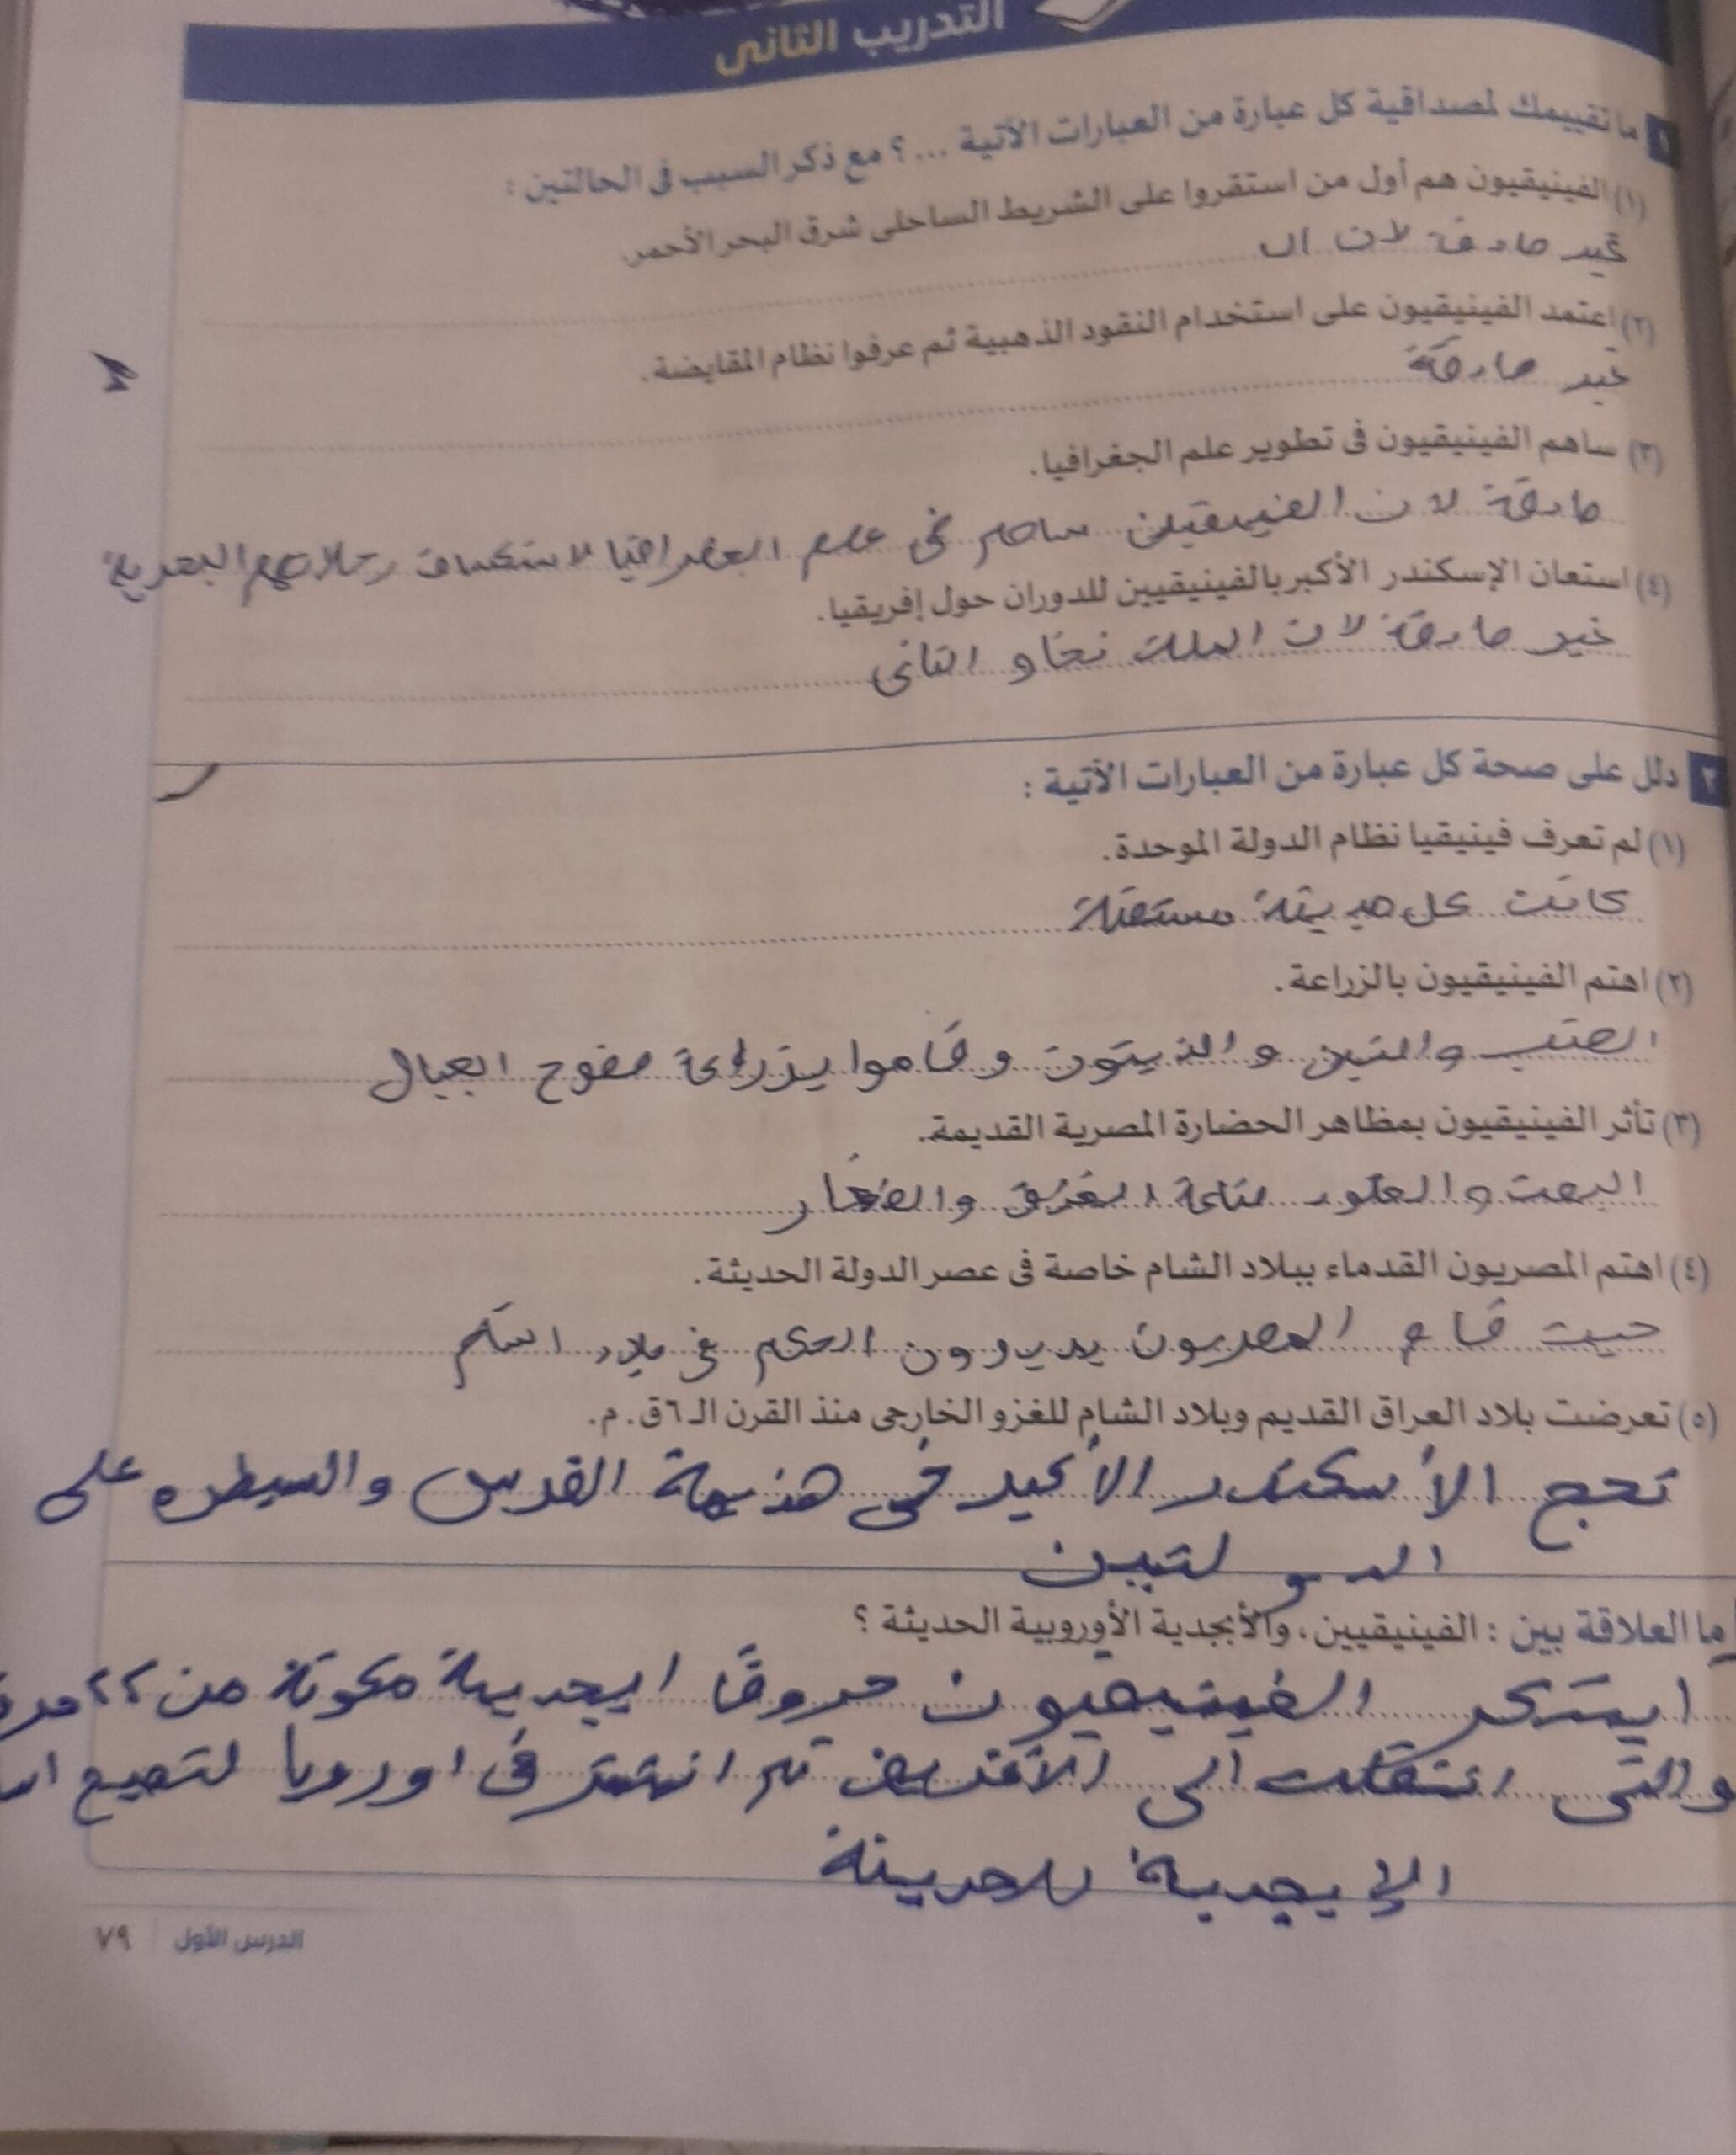 التدريب الثانى
١ ما تقييمك لمصداقية كل عبارة من العبارات الآتية ... ؟ مع ذكر السبب فى الحالتين :
(١) الفينيقيون هم أول من استقروا على الشريط الساحلى شرق البحر الأحمر.
غير صادقة لان ال
(٢) اعتمد الفينيقيون على استخدام النقود الذهبية ثم عرفوا نظام المقايضة.
غير صادقة
(٣) ساهم الفينيقيون فى تطوير علم الجغرافيا.
صادقة لان الفينيقين ساهم فى علم الجغرافيا لاستكشاف رحلاتهم البحرية
(٤) استعان الإسكندر الأكبر بالفينيقيين للدوران حول إفريقيا.
غير صادقة لان الملك نخاو الثانى
٢ دلل على صحة كل عبارة من العبارات الآتية :
(١) لم تعرف فينيقيا نظام الدولة الموحدة.
كانت كل مدينة مستقلة
(٢) اهتم الفينيقيون بالزراعة.
العنب والتين والزيتون وقاموا بزراعة سفوح الجبال
(٣) تأثر الفينيقيون بمظاهر الحضارة المصرية القديمة.
البعث والخلود صناعة الخزف والفخار
(٤) اهتم المصريون القدماء ببلاد الشام خاصة فى عصر الدولة الحديثة.
حيث قام المصريون يديرون الحكم فى بلاد الشام
(٥) تعرضت بلاد العراق القديم وبلاد الشام للغزو الخارجى منذ القرن الـ ٦ ق. م.
نجح الأسكندر الأكبر فى هزيمة الفرس والسيطره على
الدولتين
ما العلاقة بين : الفينيقيين، والأبجدية الأوروبية الحديثة ؟
ابتكر الفينيقيون حروفا ابجدية مكونة من ٢٢
والتى انتقلت الى الأغريق ثم انتشر فى اوروبا لتصبح
الإبجدية الحديثة
الدرس الأول ٧٩